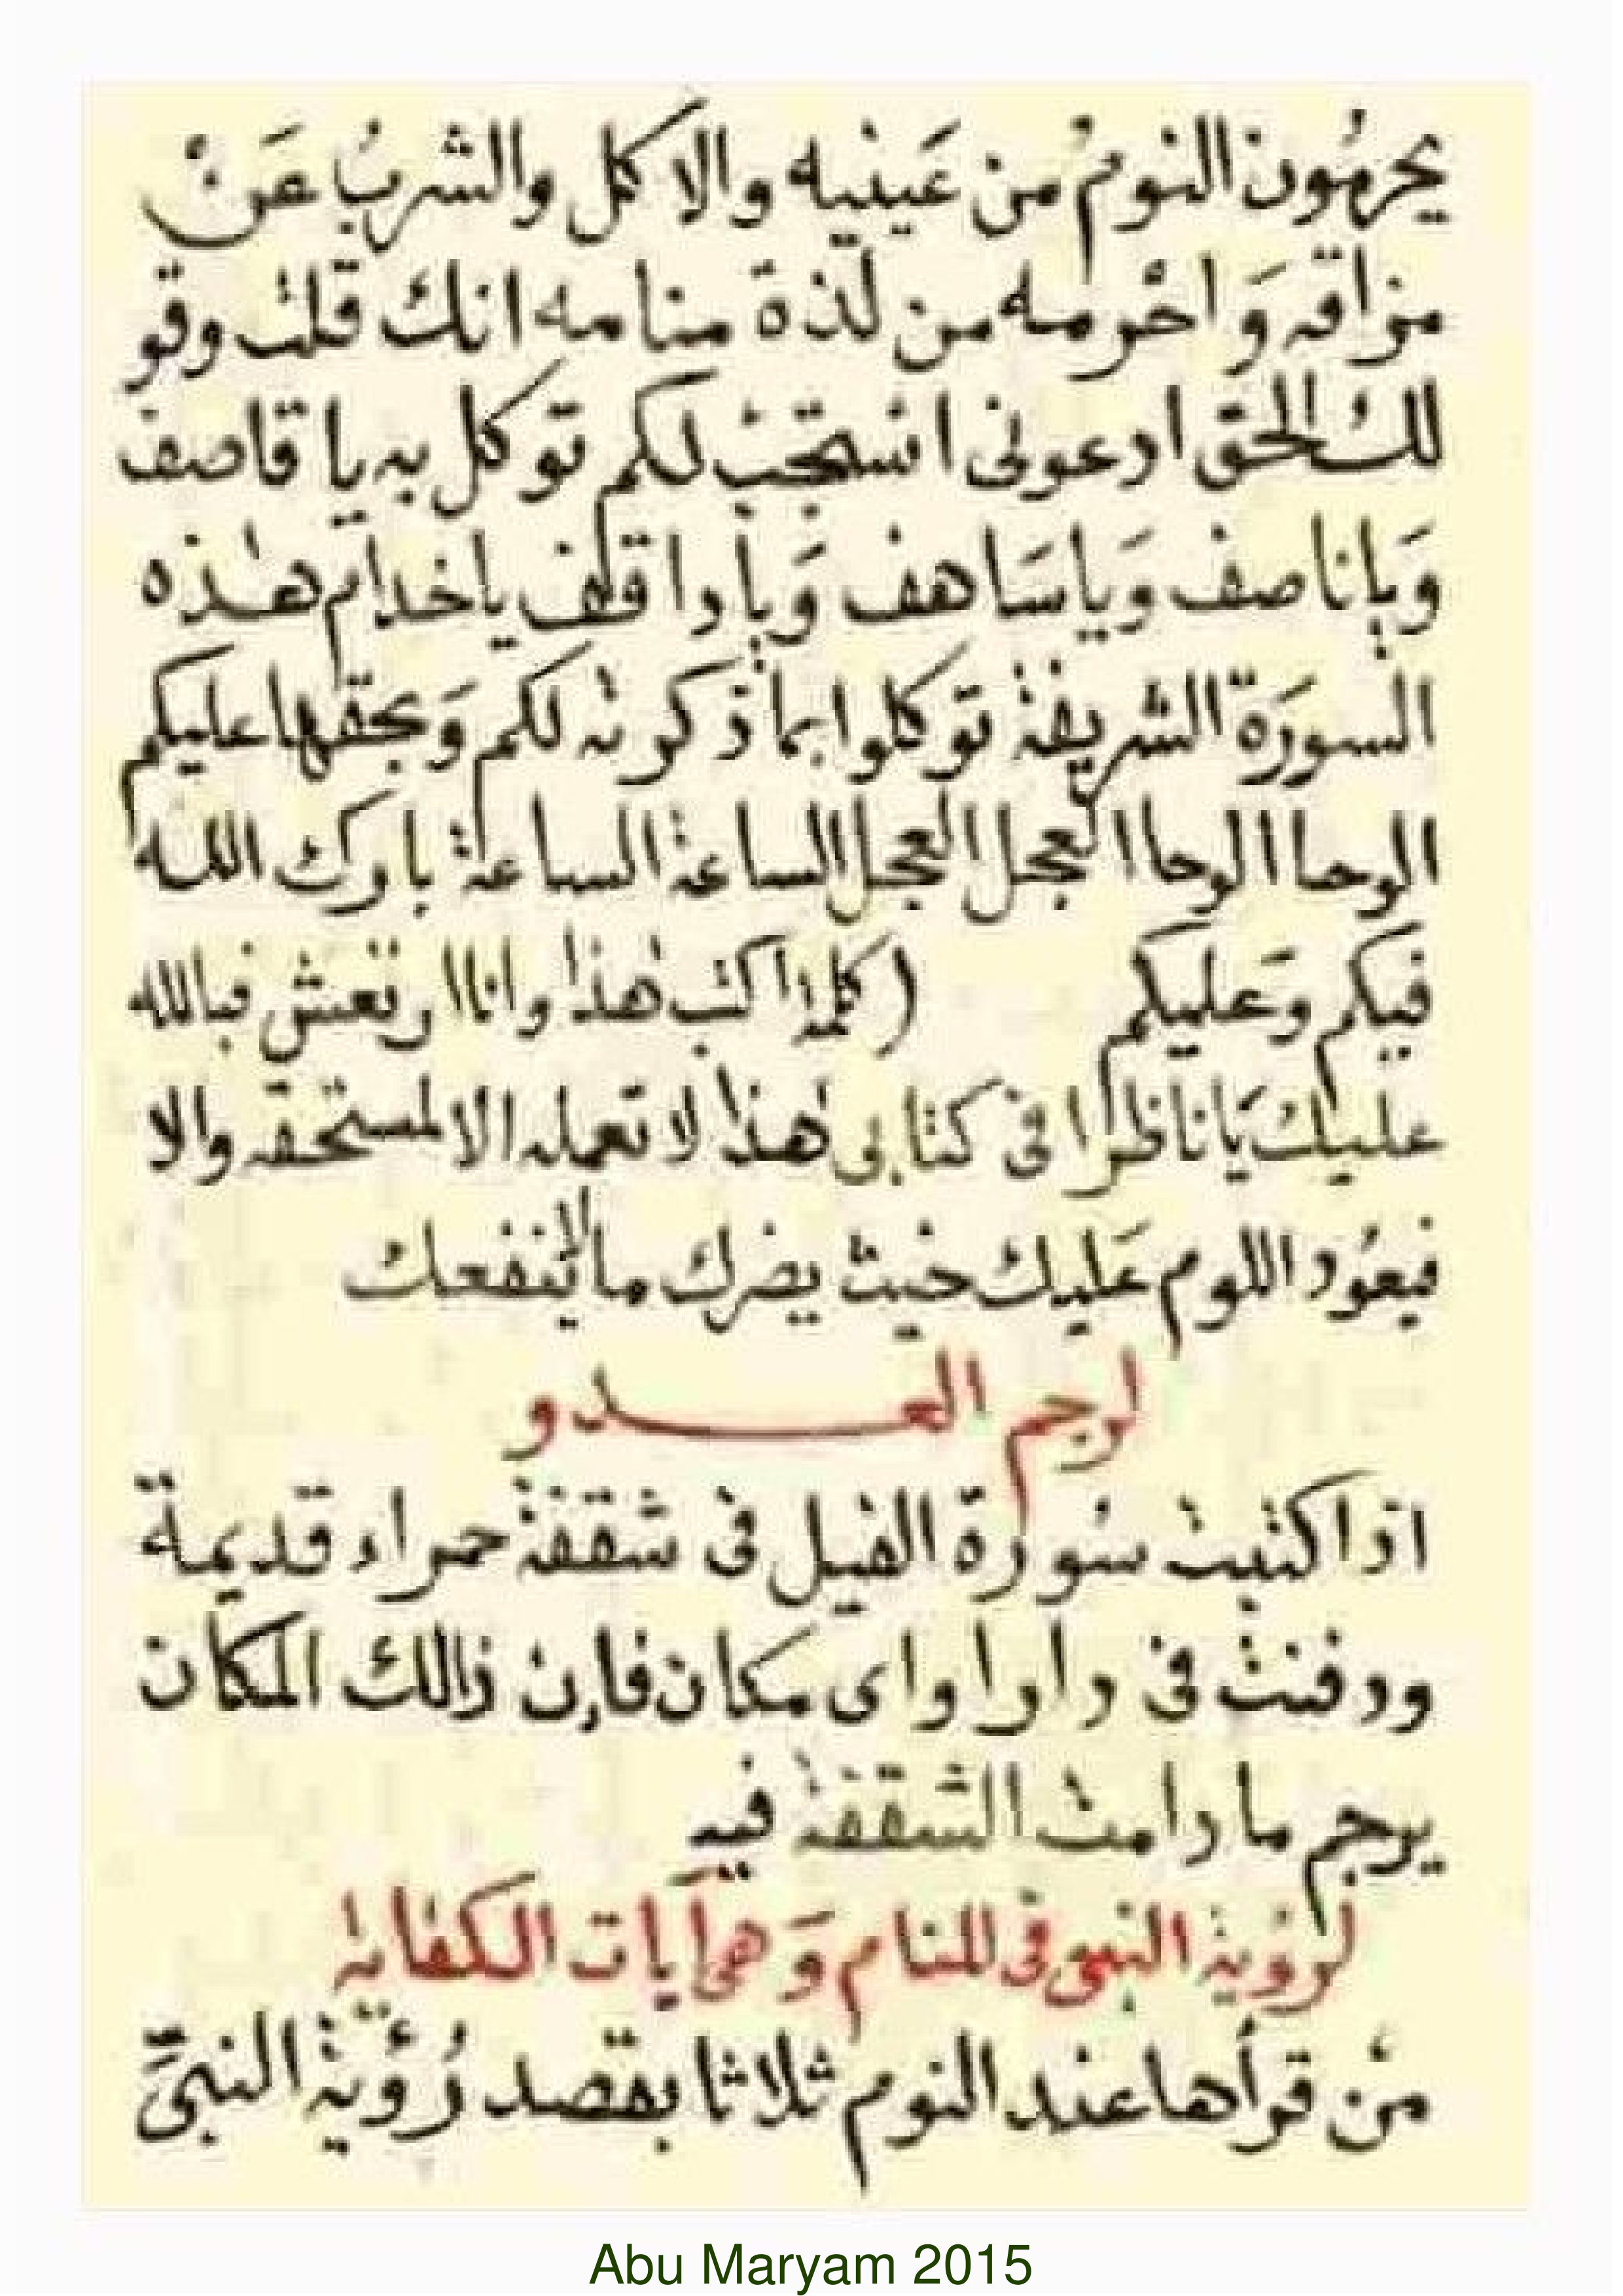 يحرمون النوم من عينيه والاكل والشرب عن
مزاقه واحرمه من لذة منامه انك قلت وقو
لك الحق ادعونى استجب لكم توكل به يا قاصف
ويا ناصف ويا ساهف ويا واقف يا خدام هذه
السورة الشريفة توكلوا بما ذكرته لكم وبحقها عليكم
الوحا الوحا العجل العجل الساعة الساعة بارك الله
فيكم وعليكم (كلما اكتب هذا وانا ارتعش فبالله
عليك يا ناظرا فى كتابى هذا لا تعمله الا لمستحقه والا
فيعود اللوم عليك حيث يضرك ما لا ينفعك
لرجم العدو
اذا كتبت سورة الفيل فى شقفة حمراء قديمة
ودفنت فى دار او اى مكان فإن ذالك المكان
يرجم ما دامت الشقفة فيه
لرؤية النبى فى المنام وهى آيات الكفاية
من قرأها عند النوم ثلاثا بقصد رؤية النبىّ
Abu Maryam 2015